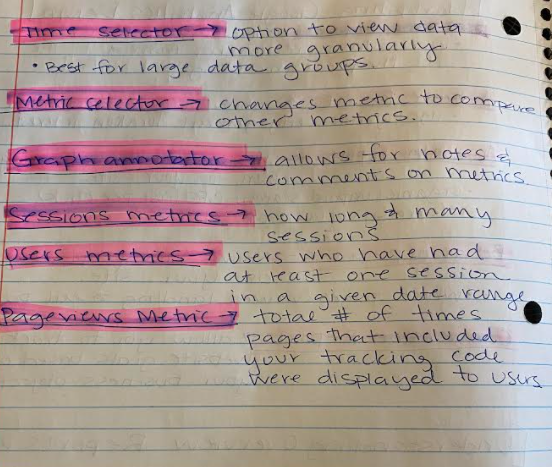 Time selector → option to view data
more granularly
• Best for large data groups.
Metric selector → changes metric to compare
other metrics.
Graph annotator → allows for notes &
comments on metrics
Sessions metrics → how long & many
sessions
Users metrics → users who have had
at least one session
in a given date range
Pageviews Metric → total # of times
pages that included
your tracking code
were displayed to users